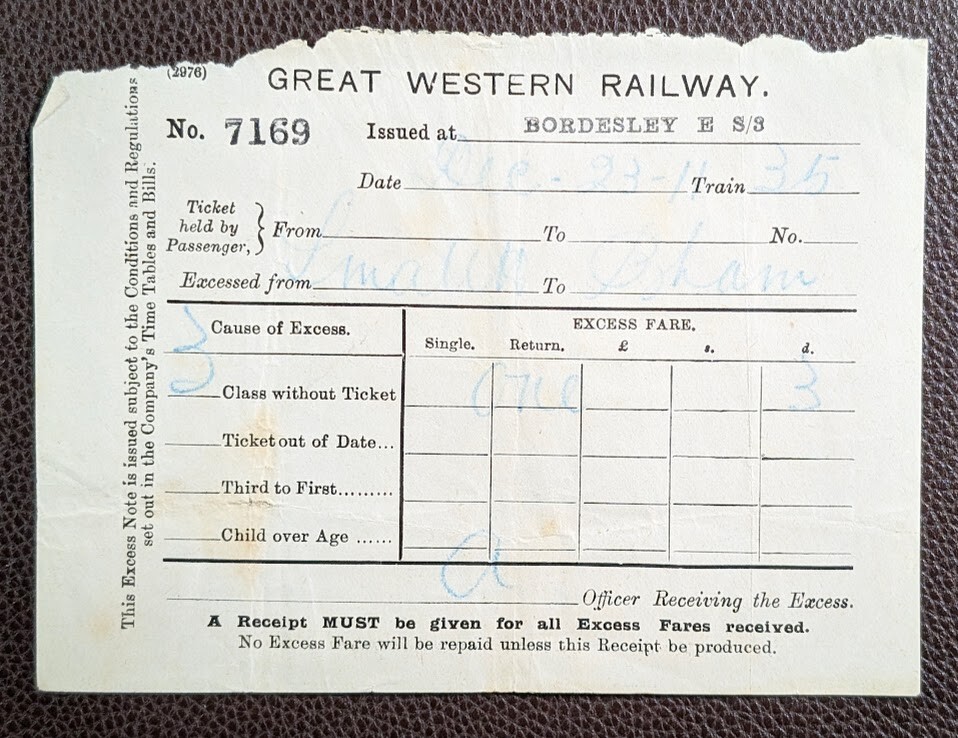 (2976)
GREAT WESTERN RAILWAY.
No. 7169 Issued at BORDESLEY E S/3
Date Dec - 23 - 11 Train 35
Ticket held by Passenger, } From To No.
Excessed from Small H To B'ham
Cause of Excess. EXCESS FARE.
Single. Return. £ s. d.
3 Class without Ticket One 3
Ticket out of Date...
Third to First.........
Child over Age ......
Officer Receiving the Excess.
A Receipt MUST be given for all Excess Fares received.
No Excess Fare will be repaid unless this Receipt be produced.
This Excess Note is issued subject to the Conditions and Regulations
set out in the Company's Time Tables and Bills.